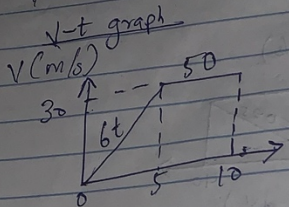 V-t graph
V(m/s)
50
30
6t
0 5 10